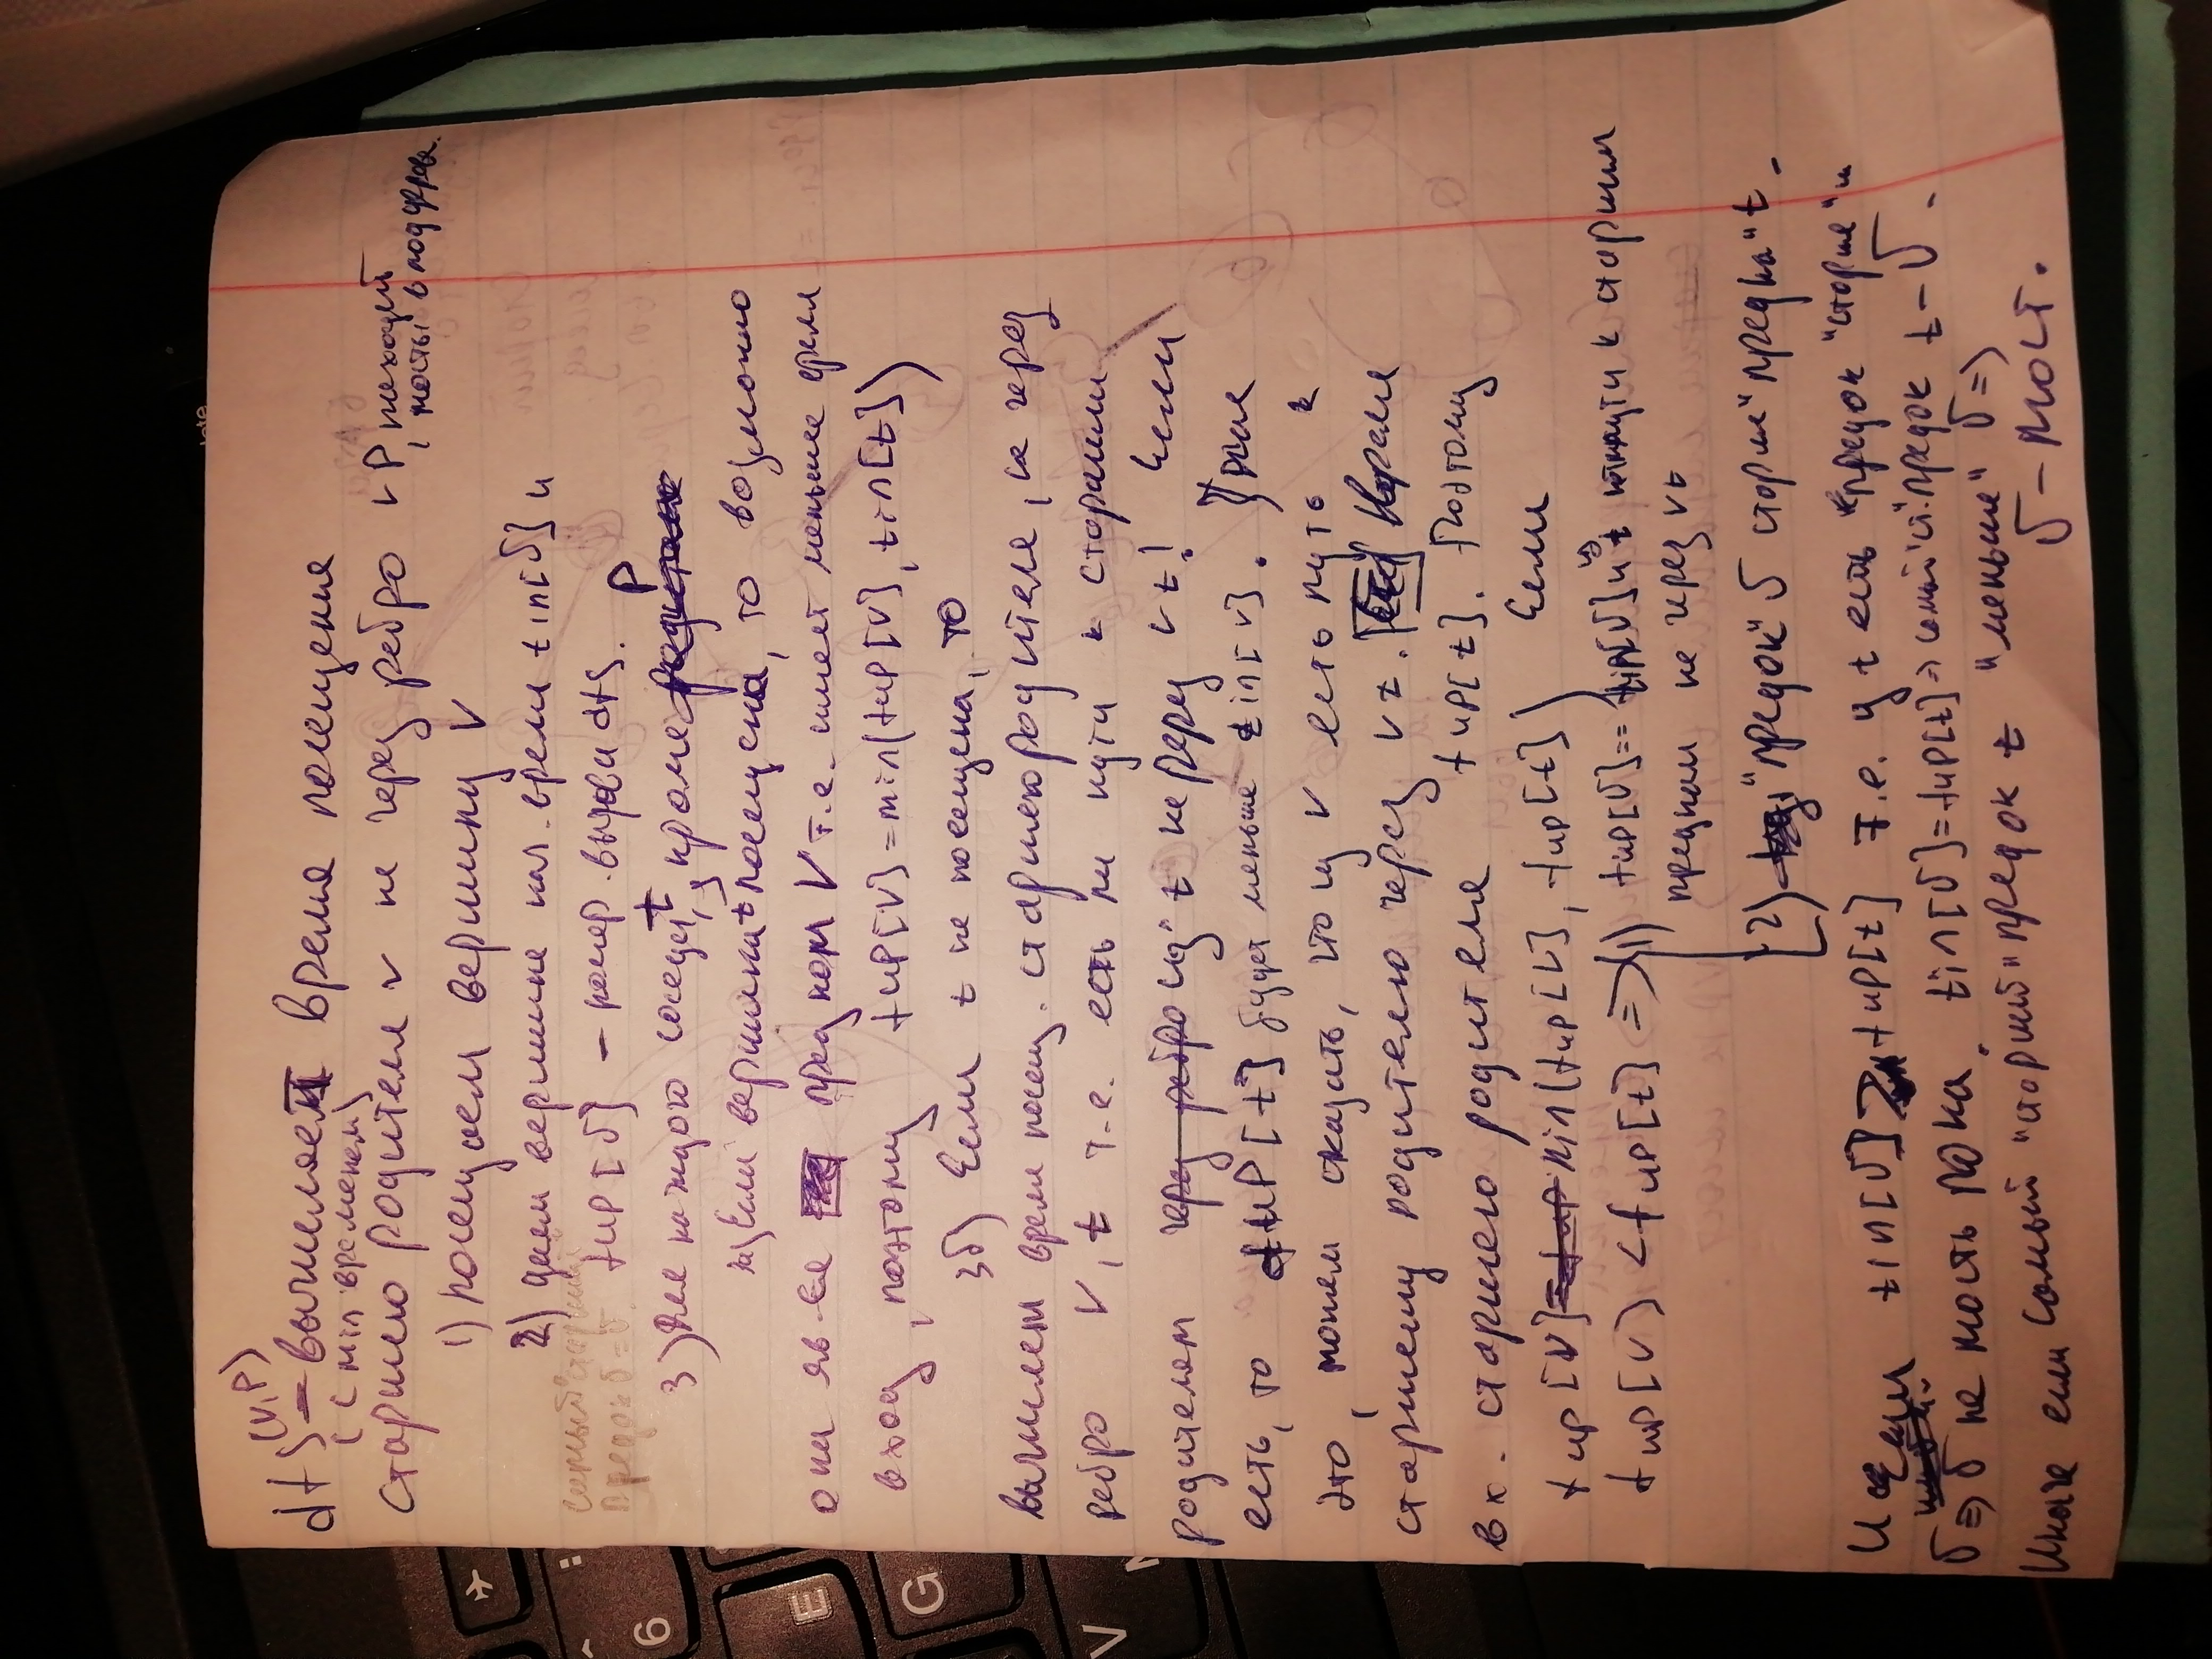 dfs(v,p) — вычисляет время посещения
(min временем)
старшего родителя v не через ребро vp, находит мосты в поддереве.
1) посещаем вершину v
2) даем вершине нач. время tin[v] и
fup[v] — номер вызова dfs.
3) для каждого соседа t, кроме p
за) если вершина t посещена, то возможно
она яв-ся предком v т.е. имеет меньшее время
входа, поэтому fup[v]=min(fup[v], tin[t])
3б) Если t не посещена, то
вычислем время посещ. старшего родителя, не через
ребро v,t т.е. есть ли пути к старшим
родителям у t не через vt! Если
есть, то fup[t] будет меньше tin[v]. Зная
это, можем сказать, что у v есть путь к
старшему родителю через vt. Время
вх. старшего родителя fup[t]. Поэтому
fup[v]=min(fup[v], fup[t]) Если
fup[v] < fup[t] => 1) fup[v]==tin[v] и из t к старшим
предкам не через vt
2) "предок" v старше "предка" t.
И если tin[v] fup[t] т.е. у t есть "предок" "старше" и
v => v не мость пока. tin[v]=fup[t] => самый "ст." предок t - v.
Иначе если самый "старший" предок t "меньше" v =>
v - мост.
6
E
G
V